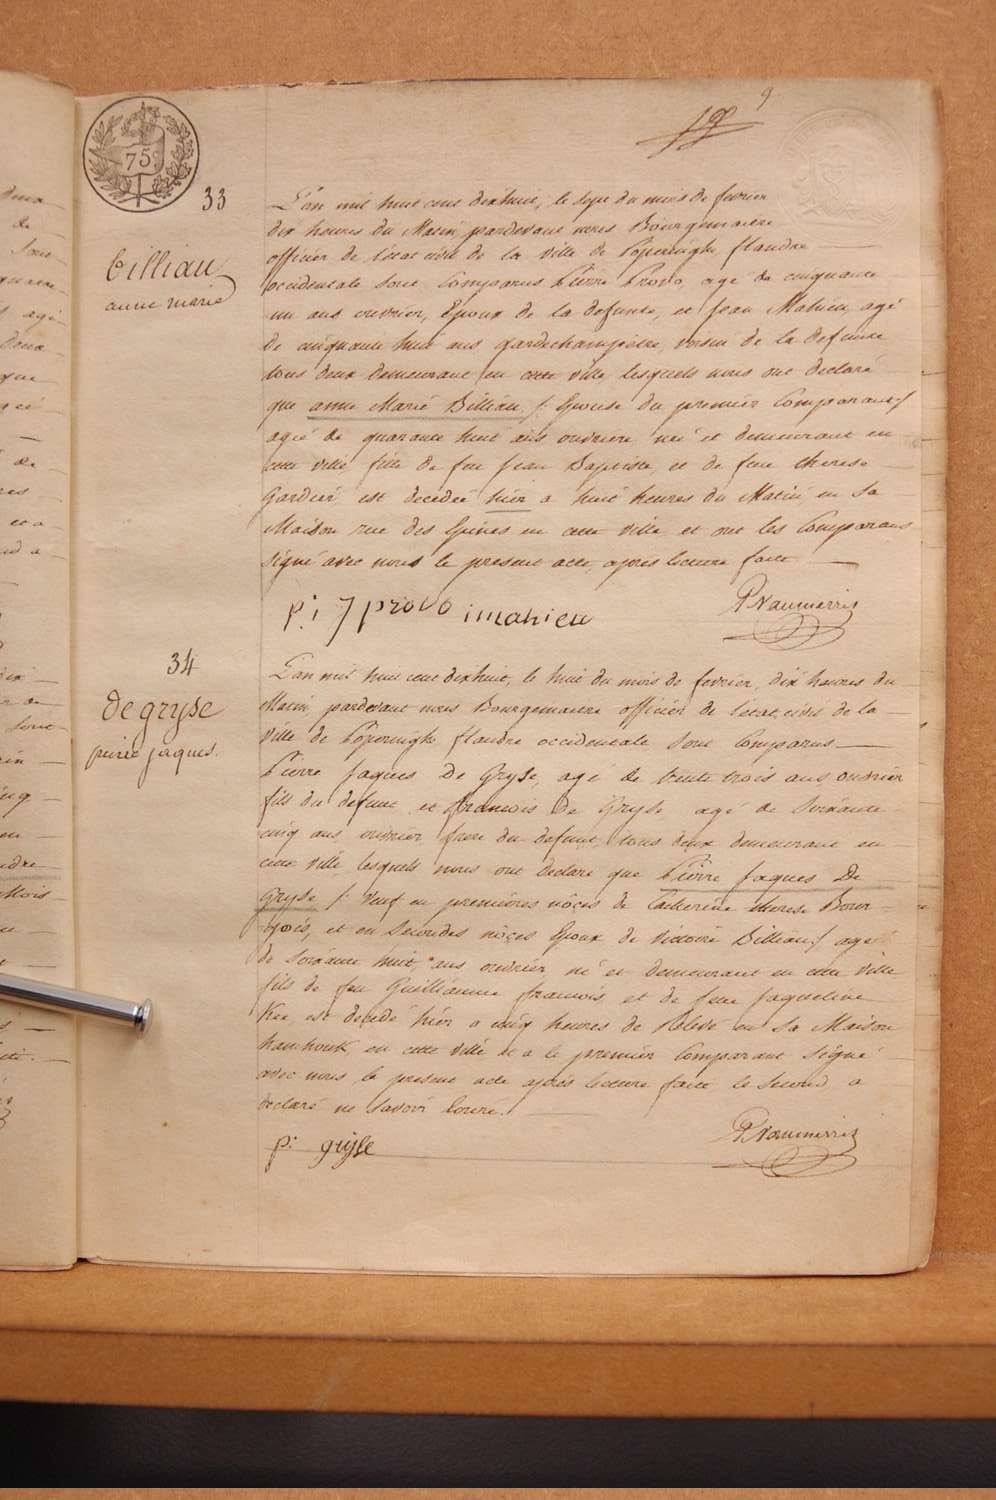 9
19
75
33
Billiau
anne marie
L'an mil huit cent dixhuit, le sept du mois de fevrier
dix heures du Matin pardevant nous Bourgemaitre
officier de l'état civil de la ville de Poperinghe flandre
occidentale sont Comparus Pierre Provo, agé de cinquante
un ans ouvrier, Epoux de la defunte, et Jean Mahieu, agé
de cinquante huit ans gardechampetre, voisin de la defunte
tous deux demeurant en cette ville lesquels nous ont declaré
que anne Marie Billiau /: Epouse du premier Comparant :/
agée de quarante huit ans ouvriere née et demeurant en
cette ville, fille de feu Jean Baptiste, et de feue therese
Gardier est decedée hier a huit heures du Matin en sa
Maison rue des Epines en cette ville et ont les Comparans
signé avec nous le present acte, après lecture faite
p: j provo imahieu
34
de gryse
peirre jaques.
L'an mil huit cent dixhuit, le huit du mois de fevrier, dix heures du
Matin pardevant nous Bourgemaitre officier de l'état civil de la
ville de Poperinghe flandre occidentale sont Comparus
Pierre Jaques De Gryse, agé de trente trois ans, ouvrier
fils du defunt, et francois De Gryse agé de soixante
cinq ans ouvrier frere du defunt, tous deux demeurant en
cette ville, lesquels nous ont declaré que Pierre Jaques De
Gryse /: veuf en premières nôçes de Catherine therese Bour-
geois, et en secondes nôçes Epoux de Victoire Billiau :/ agé
de soixante huit ans ouvrier, né et demeurant en cette ville
fils de feu Guilliaume francois et de feue Jaqueline
est decedé hier a cinq heures de en sa Maison
hamhouk en cette ville et a le premier Comparant signé
avec nous le present acte après lecture faite le second a
declaré ne savoir ecrire.
p: gryse